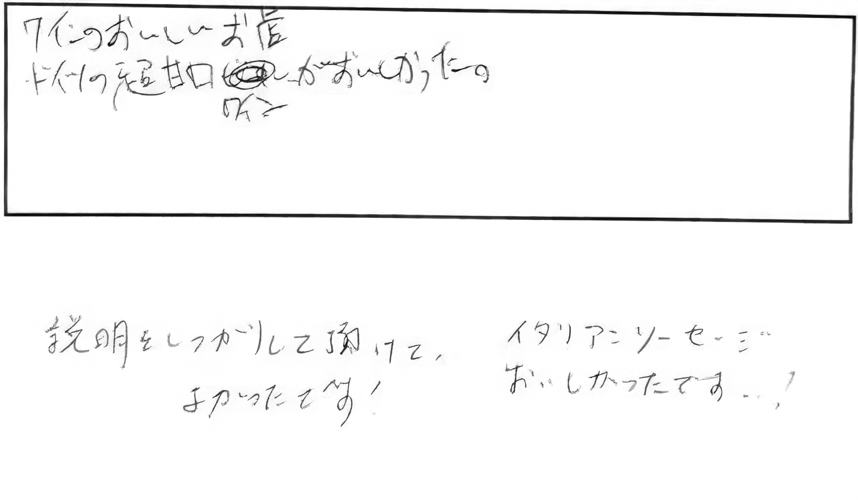 ワインのおいしいお店
ドイツの超甘口ワインがおいしかった。
説明をしっかりして頂けて、
よかったです!
イタリアンソーセージ
おいしかったです...!